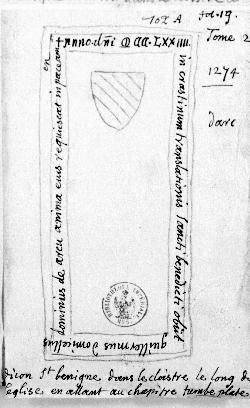 102 A
fol. 19.
Tome 2
1274
darc
+ Anno. dñi M CC. LXX IIII.
in crastinum translationis sancti benedicti obiit
guillermus domicellus
dominus de arcu anima eius requiescat in pace am
en
dicon St benigne dans le cloistre le long de
l'eglise en allant au chapitre tumbe plate